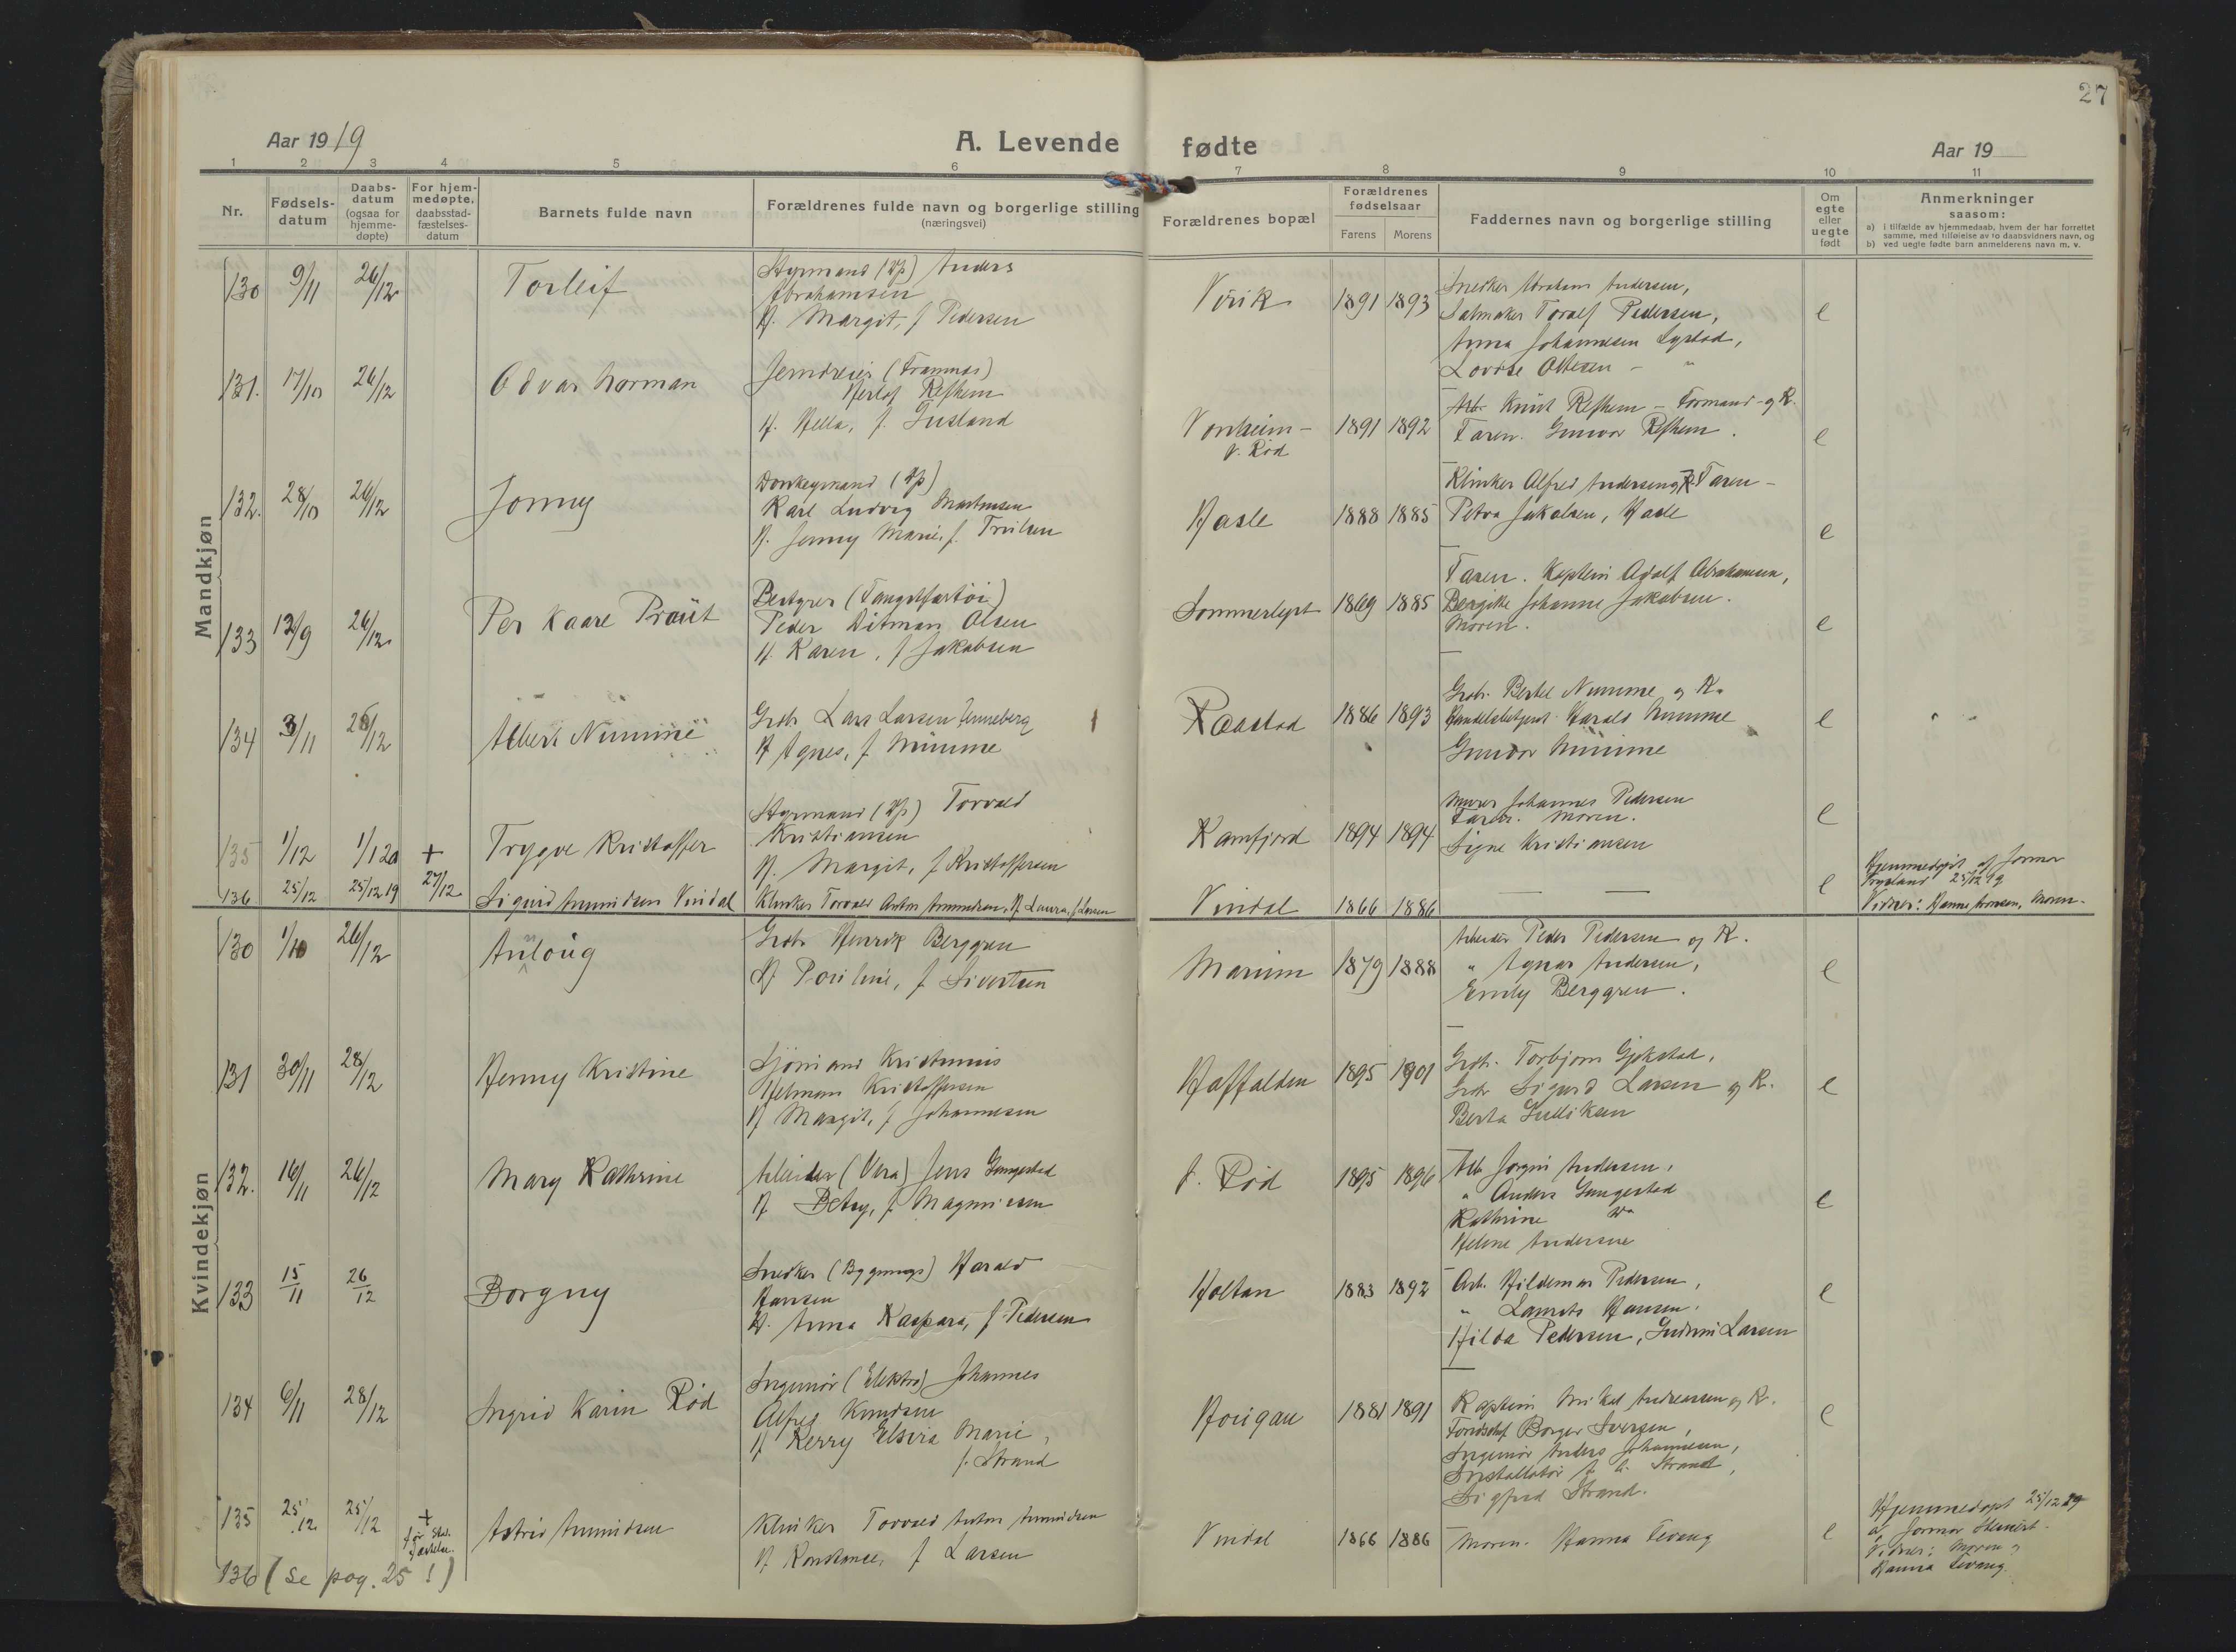 27
Aar 1919
A. Levende fødte
Aar 19
1 2 3 4 5 6 7 8 9 10 11
Nr.
Fødsels-
datum
Daabs-
datum
(ogsaa for
hjemme-
døpte)
For hjem-
medøpte.
daabsstad-
fæstelses-
datum
Barnets fulde navn
Forældrenes fulde navn og borgerlige stilling
(næringsvei)
Forældrenes bopæl
Forældrenes
fødselsaar
Farens Morens
Faddernes navn og borgerlige stilling
Om
egte
eller
uegte
født
Anmerkninger
saasom:
a) i tilfælde av hjemmedaab, hvem der har forrettet
samme, med tilføielse av to daabsvidners navn, og
b) ved uegte fødte barn anmelderens navn m. v.
Mandkjøn
130 9/11 26/12 Torleif
Styrmand (Hp) Anders
Abrahamsen
H. Margit, f Pedersen
Virik 1891 1893
Snedker Abraham Andersen,
Salmaker Toralf Pedersen,
Anna Johannesen
Lovise
e
131. 17/10 26/12 Odvar Norman
Jerndreier (Framnæs)
Herlof Refhem
H. Hella, f.
V. Rød
1891 1892
Arb. Knut Refhem - Formand - og K.
Faren. Gunvor Refhem.
e
132. 28/10 26/12 Jonny
Donkeymand (Hp)
Karl Ludvig Martinsen
H. Jenny Marie, f.
Hasle 1888 1885
Klinker Alfred Andersen og K. Faren -
Petra Jakobsen, Hasle
e
133 12/9 26/12 Per Kaare
Bestyrer (Fangstfartøi)
Peder Ditman Olsen
H. Karen, f Jakobsen
1869 1885
Faren. Kaptein Adolf Abrahamsen,
Johanne Jakobsen.
Moren.
e
134 3/11 26/12 Albert Numme
Grdb Lars Larsen
H Agnes, f. Numme
Raastad 1886 1893
Grdb. Bertel Numme og K.
Handelsbetjent. Harald Numme
Gunvor Numme
e
135 1/12 1/1 20 + Trygve Kristoffer
Styrmand (Hp) Torvald
Kristiansen
H. Margit, f Kristoffersen
Kamfjord 1894 1894
Murer Johannes Pedersen
Faren. Moren.
Signe Kristiansen
e
136 25/12 25/12 19 27/12 Sigurd Amundsen Vindal
Klinker Torvald Anton Amundsen, H Laura, f Larsen
Vindal 1866 1886
e
Hjemmedøpt af Jormor
25/12 19
Vidner: Hanna moren.
Kvindekjøn
130 1/10 26/12 Anloug
Grdb Henrik Berggren
H Pouline, f Sivertsen
Marum 1879 1888
Arbeider Peder Pedersen og K.
" Agnar Andersen,
Emily Berggren.
e
131 30/11 28/12 Henny Kristine
Sjømand
Helman Kristoffersen
H Margit, f Johannesen
Haffalden 1895 1901
Grdb. Torbjørn Gjekstad,
Grdb Sigurd Larsen og K.
Berta Gulliksen
e
132. 16/11 26/12 Mary Kathrine
Arbeider (Vera) Jens Gangestad
H Betsy, f. Magnussen
Rød 1895 1896
Arb Jørgen Andersen,
" Anders Gangestad
Kathrine
Helene Andersen
e
133 15/11 26/12 Borgny
Snedker (Bygnings) Harald
Hansen
H. Anna Kaspara, f Pedersen
Holtan 1883 1892
Arb. Hildemar Pedersen,
" Laurits Hansen.
Hilda Pedersen, Gudrun Larsen
e
134 6/11 28/12 Ingrid Karin Rød
Ingeniør (Elektro) Johannes
Alfred Knudsen
H Kerry Marie,
f. Strand
Hougan 1881 1891
Kaptein Mikal Andreassen og K.
Borger Iversen,
Ingeniør Anders Johannesen,
Installatør Strand,
Sigfred Strand.
e
135 25/12 25/12 + før
Astrid Amundsen
Klinker Torvald Anton Amundsen
H Konstance, f Larsen
Vindal 1866 1886
Moren. Hanna Tevang
e
Hjemmedøpt 25/12 19
af Jormor
Vidner: Moren og
Hanna Tevang.
136 (se pag. 25!)